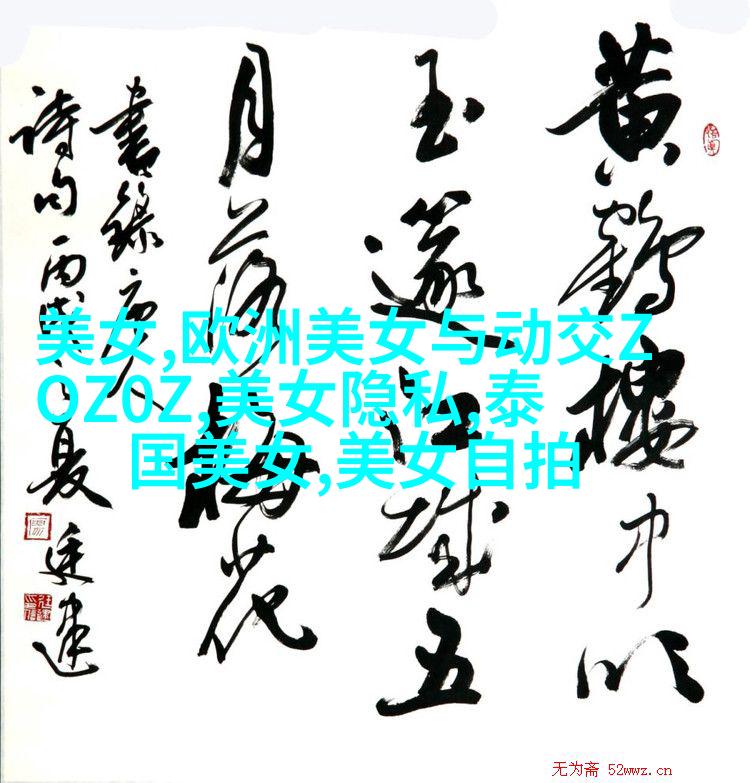 黄鶴樓中吹
玉篴江城五
月落梅花
書錄唐人
詩句丙戌之夏廷建
美女,欧洲美女与动交Z
OZ0Z,美女隐私,泰
国美女,美女自拍
无为斋 52wwz.cn